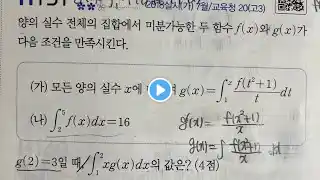 7월/교육청 20(고3)
양의 실수 전체의 집합에서 미분가능한 두 함수 f(x)와 g(x)가
다음 조건을 만족시킨다.
(가) 모든 양의 실수 x에 g(x)=∫₁ f(t²+1)/t dt
(나) ∫₂⁵ f(x)dx=16
g(x)= f(x²+1)/x
g(x)=∫ f(x²+1)/x
g(2)=3일 때, ∫₁² xg(x)dx의 값은? (4점)